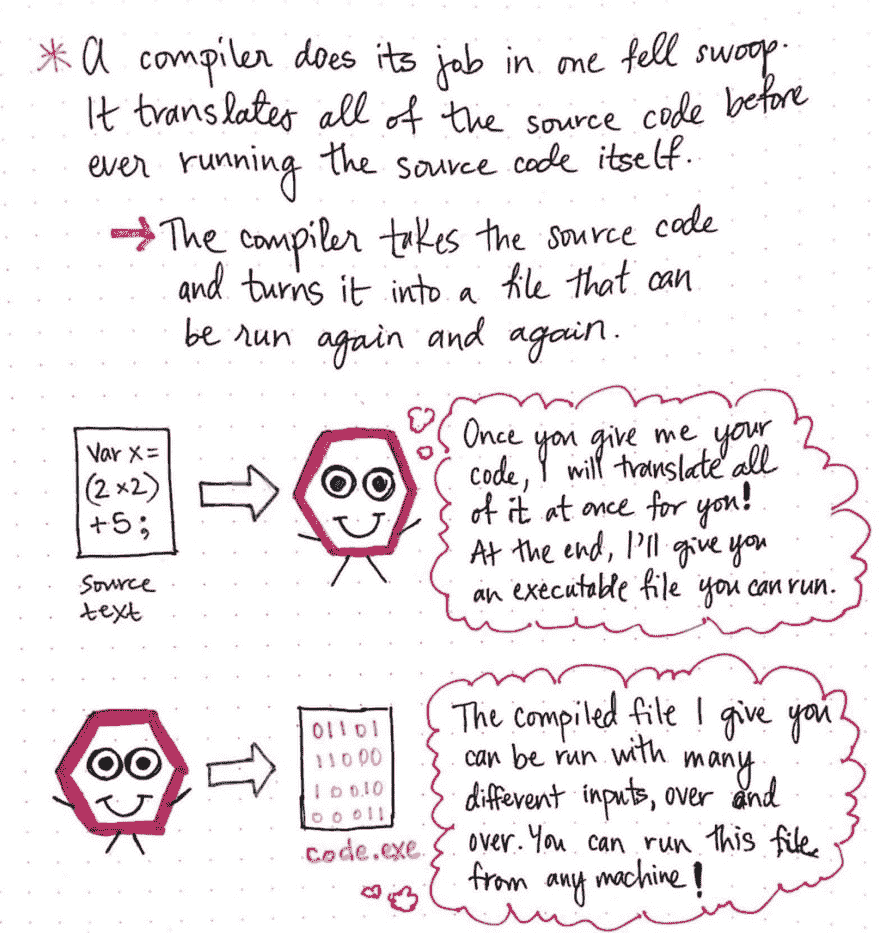 * A compiler does its job in one fell swoop.
It translates all of the source code before
ever running the source code itself.
→ The compiler takes the source code
and turns it into a file that can
be run again and again.
Var x =
(2 x2)
+5;
Source
text
Once you give me your
code, I will translate all
of it at once for you!
At the end, I'll give you
an executable file you can run.
01101
11000
10010
00011
code.exe
The compiled file I give you
can be run with many
different inputs, over and
over. You can run this file
from any machine!